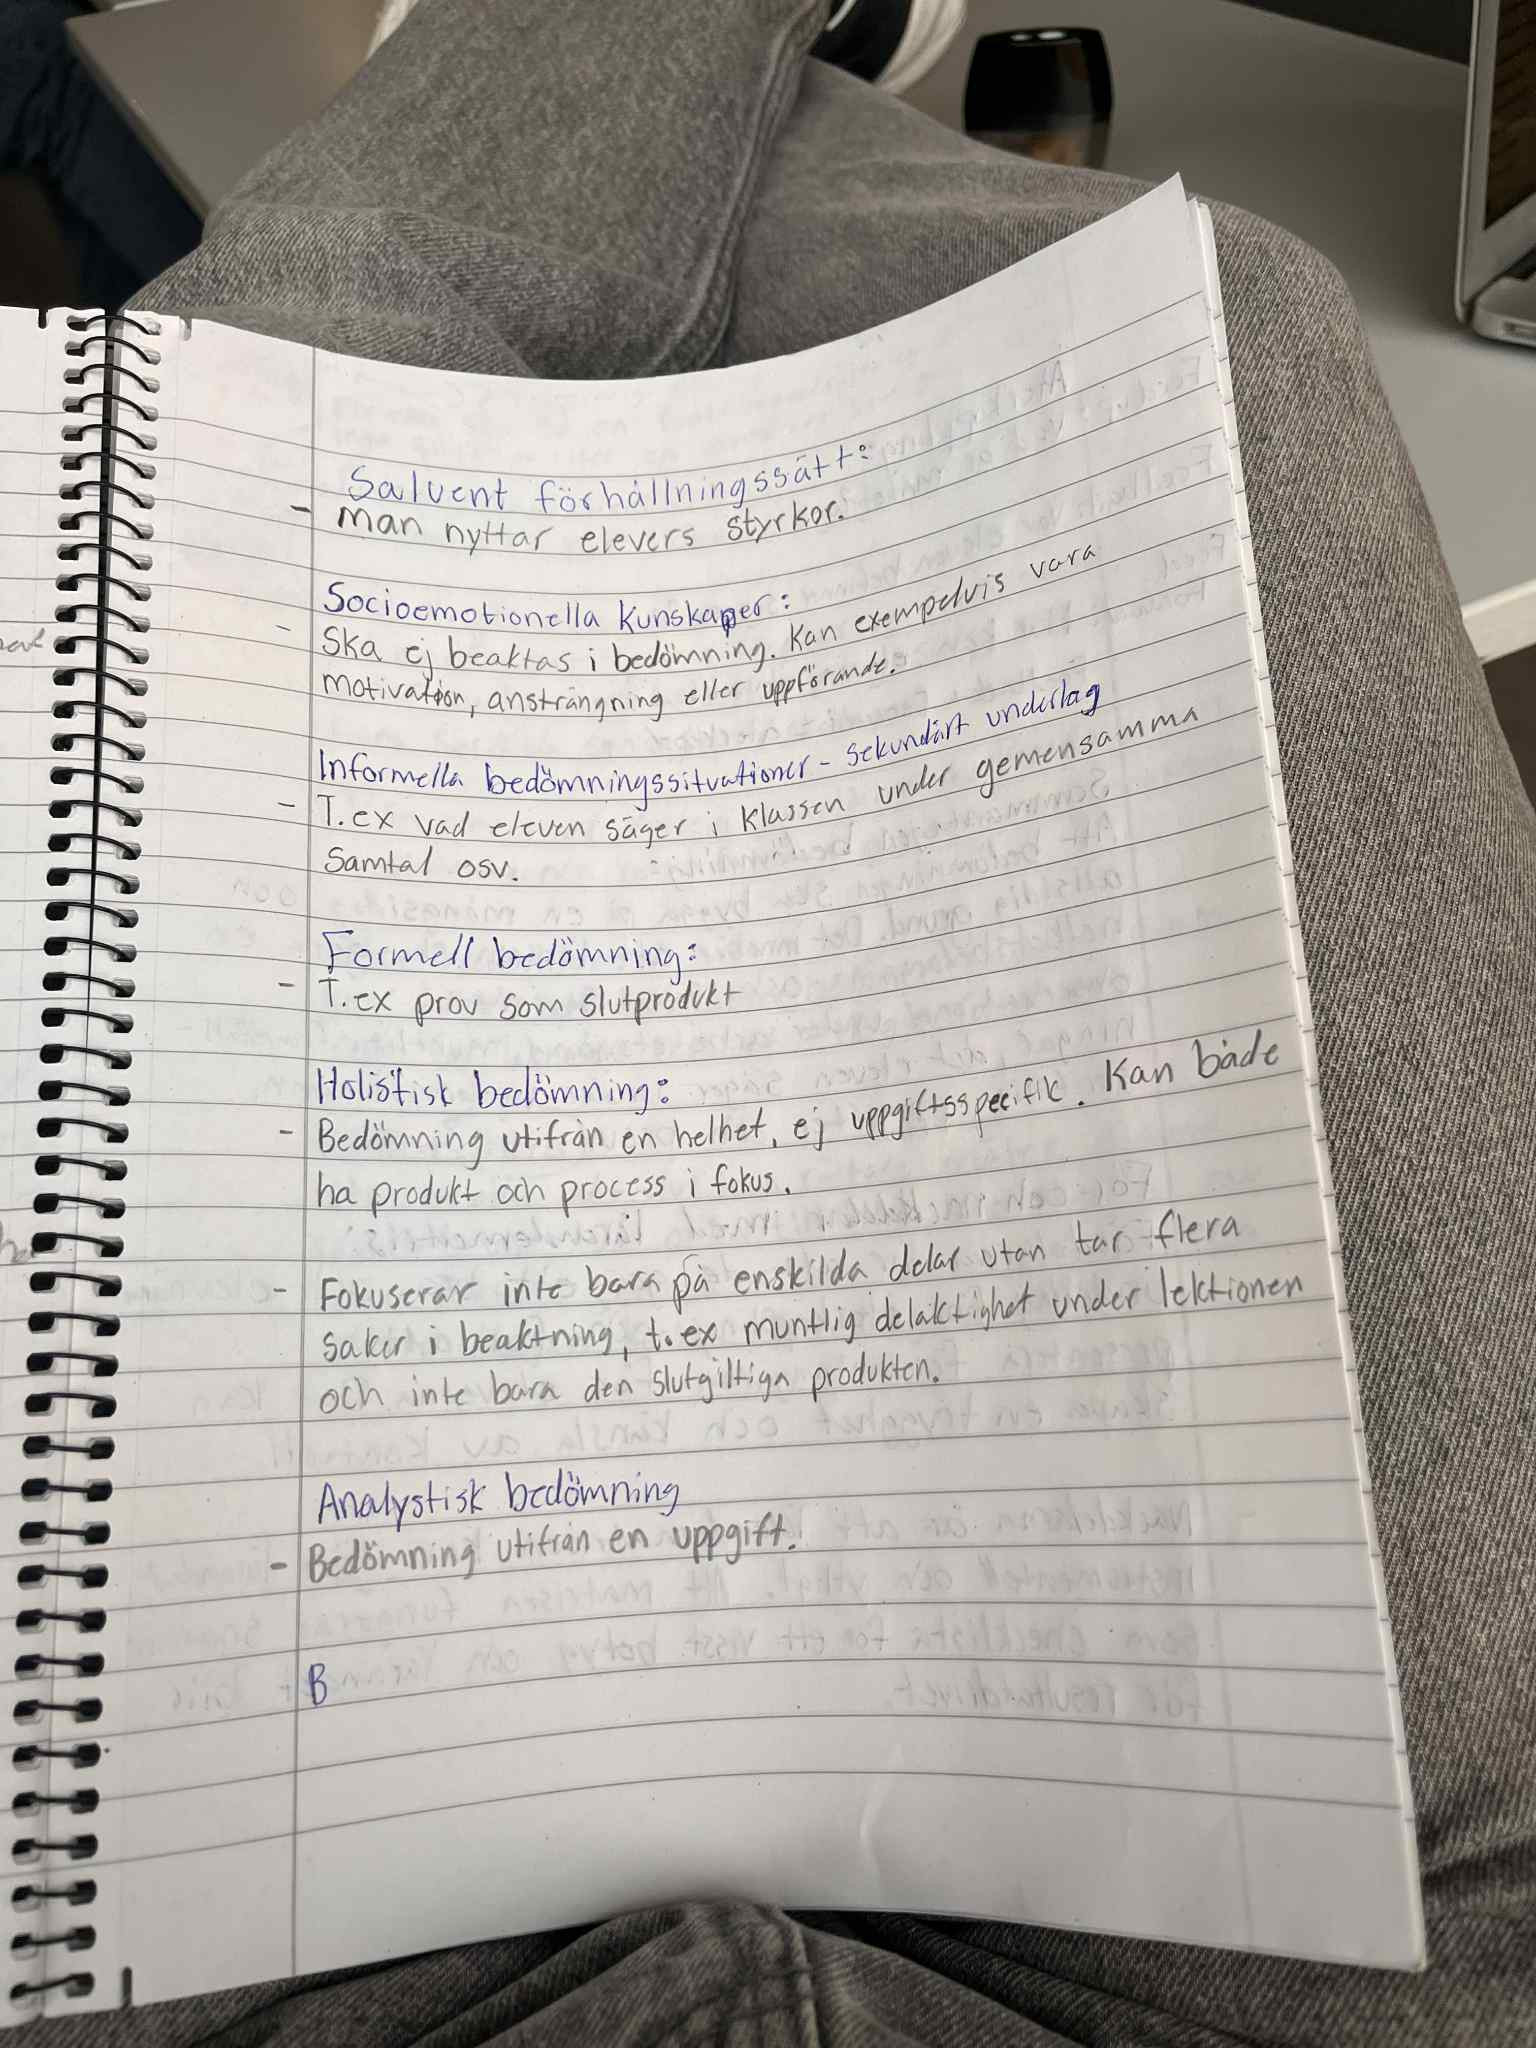 Salvent förhållningssätt:
- man nyttar elevers styrkor.
Socioemotionella kunskaper:
- Ska ej beaktas i bedömning. Kan exempelvis vara
motivation, ansträngning eller uppförande.
Informella bedömningssituationer - sekundärt underlag
- T.ex vad eleven säger i klassen under gemensamma
samtal osv.
Formell bedömning:
- T.ex prov som slutprodukt
Holistisk bedömning:
- Bedömning utifrån en helhet, ej uppgiftsspecifik. Kan både
ha produkt och process i fokus.
- Fokuserar inte bara på enskilda delar utan tar flera
saker i beaktning, t.ex muntlig delaktighet under lektionen
och inte bara den slutgiltiga produkten.
Analystisk bedömning
- Bedömning utifrån en uppgift.
B